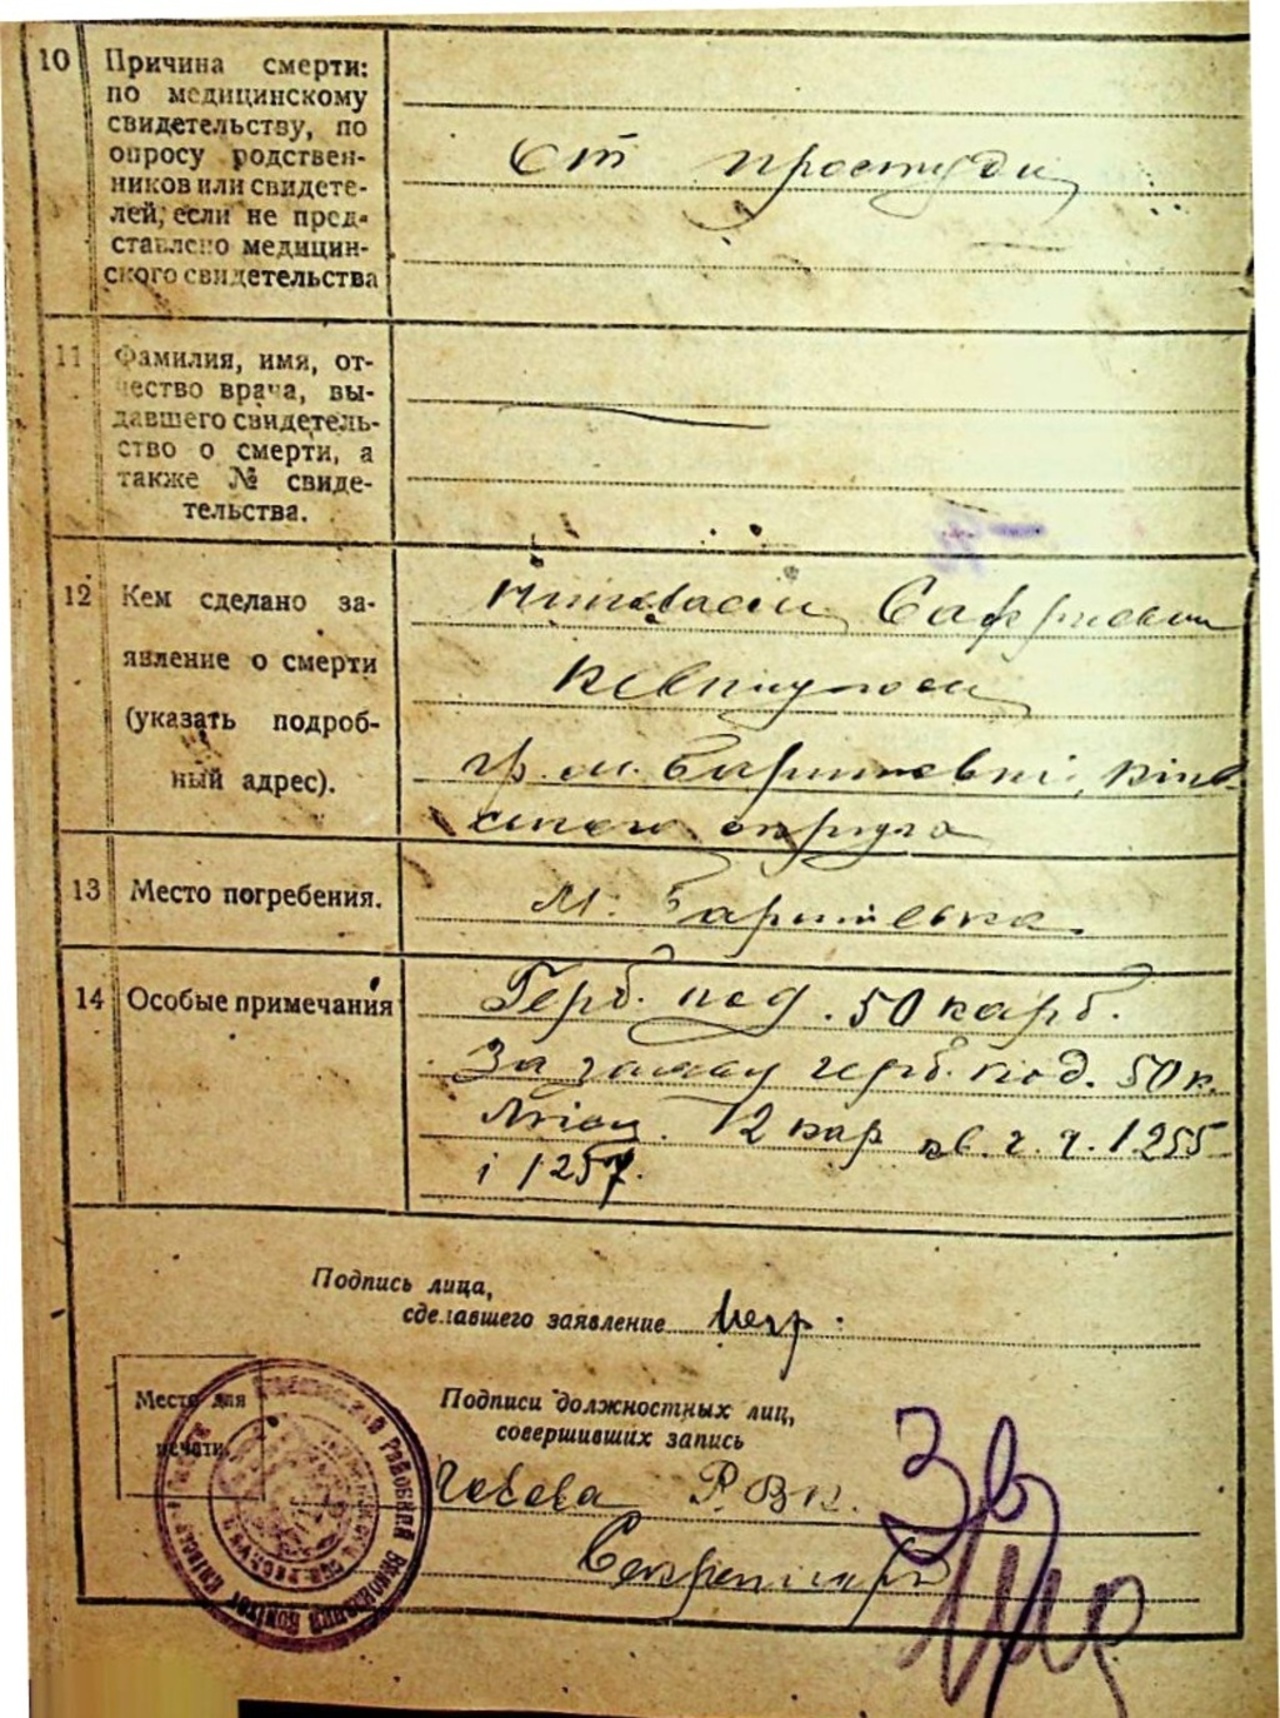 10 Причина смерти:
по медицинскому
свидетельству, по
опросу родствен-
ников или свидете-
лей, если не пред-
ставлено медицин-
ского свидетельства
От простуди
11 Фамилия, имя, от-
чество врача, вы-
давшего свидетель-
ство о смерти, а
также № свиде-
тельства.
12 Кем сделано за-
явление о смерти
(указать подроб-
ный адрес).
гр. м. Баришевкі, Київ-
ського округа
13 Место погребения.
М. Баришевка
14 Особые примечания
Герб. под. 50 карб.
За заяву герб. под. 50 к.
12 кар кв. г. ч. 1255
і 1257.
Подпись лица,
сделавшего заявление
Место для
печати
Подписи должностных лиц,
совершивших запись
Голова Р.В.К.
Секретарь